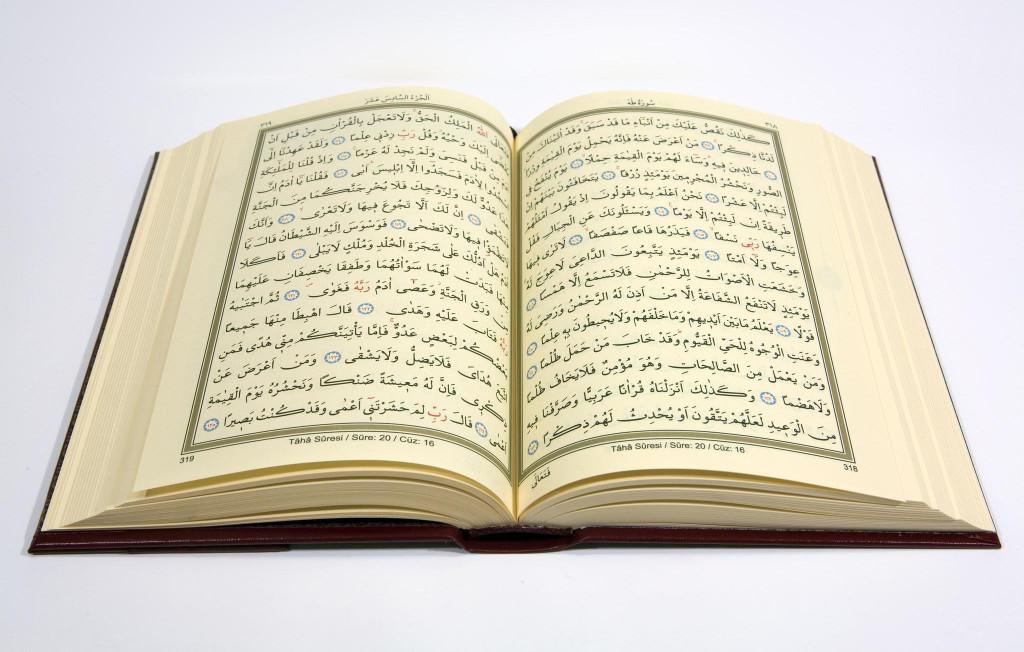 سُورَةُ طٰهٰ
٣١٨
كَذٰلِكَ نَقُصُّ عَلَيْكَ مِنْ اَنْبَٓاءِ مَا قَدْ سَبَقَۚ وَقَدْ اٰتَيْنَاكَ مِنْ
لَدُنَّا ذِكْرًاۚ ﴿٩٩﴾ مَنْ اَعْرَضَ عَنْهُ فَاِنَّهُ يَحْمِلُ يَوْمَ الْقِيٰمَةِ وِزْرًاۙ
﴿١٠٠﴾ خَالِدِينَ فِيهِۜ وَسَٓاءَ لَهُمْ يَوْمَ الْقِيٰمَةِ حِمْلًاۙ ﴿١٠١﴾ يَوْمَ يُنْفَخُ فِي
الصُّورِ وَنَحْشُرُ الْمُجْرِمِينَ يَوْمَئِذٍ زُرْقًاۚ ﴿١٠٢﴾ يَتَخَافَتُونَ بَيْنَهُمْ اِنْ
لَبِثْتُمْ اِلَّا عَشْرًا ﴿١٠٣﴾ نَحْنُ اَعْلَمُ بِمَا يَقُولُونَ اِذْ يَقُولُ اَمْثَلُهُمْ
طَرِيقَةً اِنْ لَبِثْتُمْ اِلَّا يَوْمًا۟ ﴿١٠٤﴾ وَيَسْـَٔلُونَكَ عَنِ الْجِبَالِ فَقُلْ
يَنْسِفُهَا رَبِّي نَسْفًاۙ ﴿١٠٥﴾ فَيَذَرُهَا قَاعًا صَفْصَفًاۙ ﴿١٠٦﴾ لَا تَرٰى فِيهَا
عِوَجًا وَلَٓا اَمْتًاۜ ﴿١٠٧﴾ يَوْمَئِذٍ يَتَّبِعُونَ الدَّاعِيَ لَا عِوَجَ لَهُۚ
وَخَشَعَتِ الْاَصْوَاتُ لِلرَّحْمٰنِ فَلَا تَسْمَعُ اِلَّا هَمْسًا ﴿١٠٨﴾
يَوْمَئِذٍ لَا تَنْفَعُ الشَّفَاعَةُ اِلَّا مَنْ اَذِنَ لَهُ الرَّحْمٰنُ وَرَضِيَ لَهُ
قَوْلًا ﴿١٠٩﴾ يَعْلَمُ مَا بَيْنَ اَيْدِيهِمْ وَمَا خَلْفَهُمْ وَلَا يُحِيطُونَ بِهِ عِلْمًا ﴿١١٠﴾
وَعَنَتِ الْوُجُوهُ لِلْحَيِّ الْقَيُّومِۜ وَقَدْ خَابَ مَنْ حَمَلَ ظُلْمًا ﴿١١١﴾
وَمَنْ يَعْمَلْ مِنَ الصَّالِحَاتِ وَهُوَ مُؤْمِنٌ فَلَا يَخَافُ ظُلْمًا
وَلَا هَضْمًا ﴿١١٢﴾ وَكَذٰلِكَ اَنْزَلْنَاهُ قُرْاٰنًا عَرَبِيًّا وَصَرَّفْنَا فِيهِ
مِنَ الْوَعِيدِ لَعَلَّهُمْ يَتَّقُونَ اَوْ يُحْدِثُ لَهُمْ ذِكْرًا ﴿١١٣﴾
Tâhâ Sûresi / Sûre: 20 / Cüz: 16
318
فَتَعَالَى
اَلْجُزْءُ السَّادِسُ عَشَرَ
٣١٩
اللّٰهُ الْمَلِكُ الْحَقُّۚ وَلَا تَعْجَلْ بِالْقُرْاٰنِ مِنْ قَبْلِ اَنْ
اِلَيْكَ وَحْيُهُۘ وَقُلْ رَبِّ زِدْنِي عِلْمًا ﴿١١٤﴾ وَلَقَدْ عَهِدْنَٓا اِلٰٓى
مِنْ قَبْلُ فَنَسِيَ وَلَمْ نَجِدْ لَهُ عَزْمًا۟ ﴿١١٥﴾ وَاِذْ قُلْنَا لِلْمَلٰٓئِكَةِ
اسْجُدُوا لِاٰدَمَ فَسَجَدُٓوا اِلَّٓا اِبْلِيسَۜ اَبٰى ﴿١١٦﴾ فَقُلْنَا يَٓا اٰدَمُ اِنَّ
هٰذَا عَدُوٌّ لَكَ وَلِزَوْجِكَ فَلَا يُخْرِجَنَّكُمَا مِنَ الْجَنَّةِ
فَتَشْقٰى ﴿١١٧﴾ اِنَّ لَكَ اَلَّا تَجُوعَ فِيهَا وَلَا تَعْرٰىۙ ﴿١١٨﴾ وَاَنَّكَ
لَا تَظْمَؤُ۬ا فِيهَا وَلَا تَضْحٰى ﴿١١٩﴾ فَوَسْوَسَ اِلَيْهِ الشَّيْطَانُ قَالَ يَٓا
هَلْ اَدُلُّكَ عَلٰى شَجَرَةِ الْخُلْدِ وَمُلْكٍ لَا يَبْلٰى ﴿١٢٠﴾ فَاَكَلَا
مِنْهَا فَبَدَتْ لَهُمَا سَوْاٰتُهُمَا وَطَفِقَا يَخْصِفَانِ عَلَيْهِمَا
مِنْ وَرَقِ الْجَنَّةِۘ وَعَصٰٓى اٰدَمُ رَبَّهُ فَغَوٰىۖ ﴿١٢١﴾ ثُمَّ اجْتَبٰيهُ
رَبُّهُ فَتَابَ عَلَيْهِ وَهَدٰى ﴿١٢٢﴾ قَالَ اهْبِطَا مِنْهَا جَمِيعًا
بَعْضُكُمْ لِبَعْضٍ عَدُوٌّۚ فَاِمَّا يَأْتِيَنَّكُمْ مِنِّي هُدًى فَمَنِ
اتَّبَعَ هُدَايَ فَلَا يَضِلُّ وَلَا يَشْقٰى ﴿١٢٣﴾ وَمَنْ اَعْرَضَ عَنْ
ذِكْرِي فَاِنَّ لَهُ مَعِيشَةً ضَنْكًا وَنَحْشُرُهُ يَوْمَ الْقِيٰمَةِ
اَعْمٰى ﴿١٢٤﴾ قَالَ رَبِّ لِمَ حَشَرْتَنِٓي اَعْمٰى وَقَدْ كُنْتُ بَصِيرًا ﴿١٢٥﴾
Tâhâ Sûresi / Sûre: 20 / Cüz: 16
319